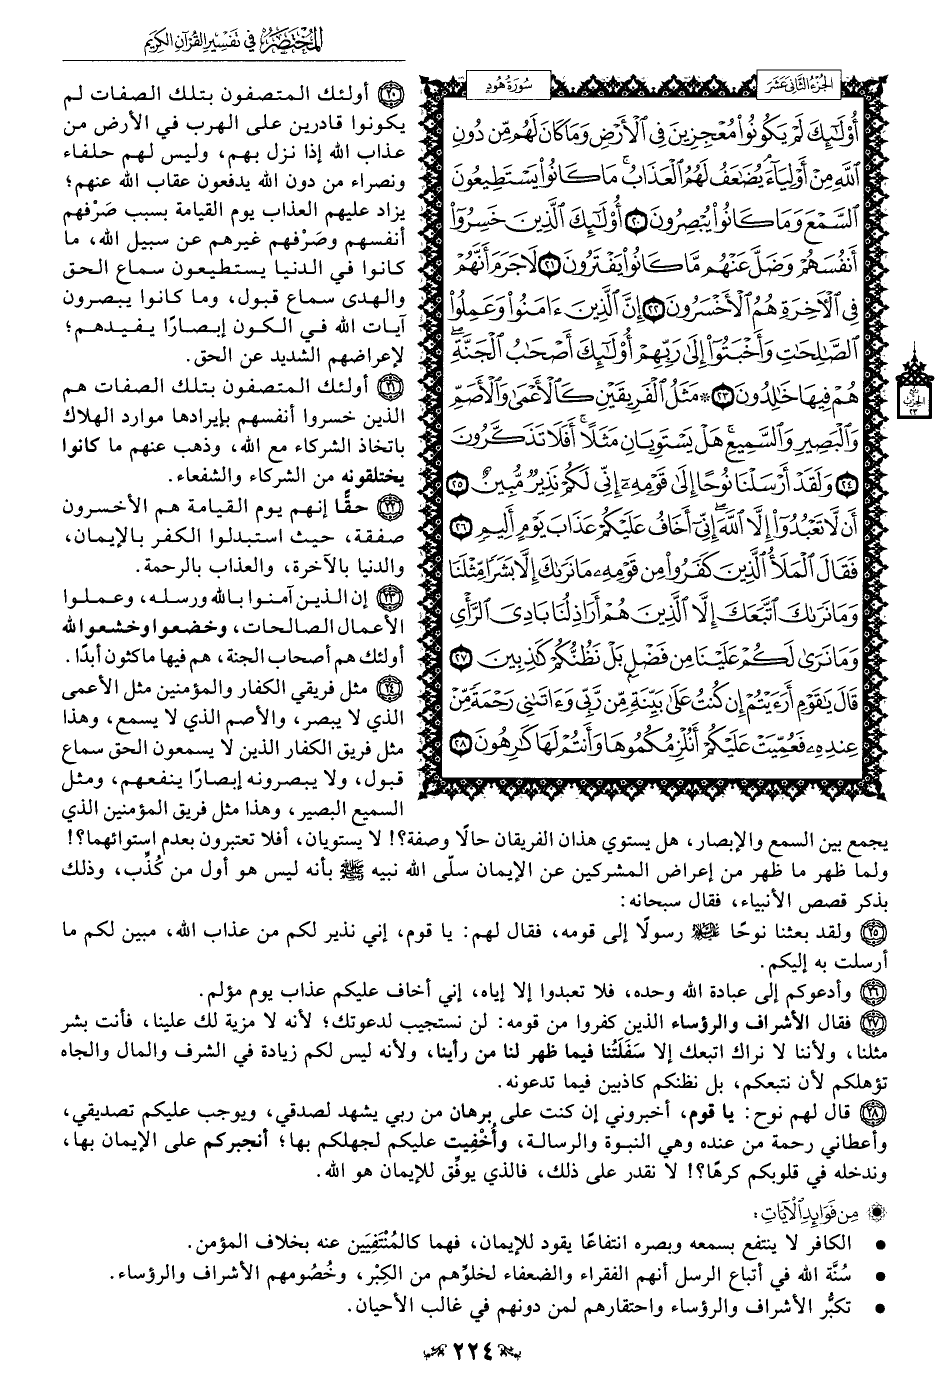 المختصر في تفسير القرآن الكريم
الجزء الثاني عشر
سورة هود
أُوْلَٰٓئِكَ لَمْ يَكُونُواْ مُعْجِزِينَ فِي ٱلْأَرْضِ وَمَا كَانَ لَهُم مِّن دُونِ
ٱللَّهِ مِنْ أَوْلِيَآءَۘ يُضَٰعَفُ لَهُمُ ٱلْعَذَابُۚ مَا كَانُواْ يَسْتَطِيعُونَ
ٱلسَّمْعَ وَمَا كَانُواْ يُبْصِرُونَ ٢٠ أُوْلَٰٓئِكَ ٱلَّذِينَ خَسِرُوٓاْ
أَنفُسَهُمْ وَضَلَّ عَنْهُم مَّا كَانُواْ يَفْتَرُونَ ٢١ لَا جَرَمَ أَنَّهُمْ
فِي ٱلْأٓخِرَةِ هُمُ ٱلْأَخْسَرُونَ ٢٢ إِنَّ ٱلَّذِينَ ءَامَنُواْ وَعَمِلُواْ
ٱلصَّٰلِحَٰتِ وَأَخْبَتُوٓاْ إِلَىٰ رَبِّهِمْ أُوْلَٰٓئِكَ أَصْحَٰبُ ٱلْجَنَّةِۖ
هُمْ فِيهَا خَٰلِدُونَ ٢٣ ۞ مَثَلُ ٱلْفَرِيقَيْنِ كَٱلْأَعْمَىٰ وَٱلْأَصَمِّ
وَٱلْبَصِيرِ وَٱلسَّمِيعِۚ هَلْ يَسْتَوِيَانِ مَثَلًاۚ أَفَلَا تَذَكَّرُونَ
٢٤ وَلَقَدْ أَرْسَلْنَا نُوحًا إِلَىٰ قَوْمِهِۦٓ إِنِّي لَكُمْ نَذِيرٌ مُّبِينٌ ٢٥
أَن لَّا تَعْبُدُوٓاْ إِلَّا ٱللَّهَۖ إِنِّيٓ أَخَافُ عَلَيْكُمْ عَذَابَ يَوْمٍ أَلِيمٍ ٢٦
فَقَالَ ٱلْمَلَأُ ٱلَّذِينَ كَفَرُواْ مِن قَوْمِهِۦ مَا نَرَىٰكَ إِلَّا بَشَرًا مِّثْلَنَا
وَمَا نَرَىٰكَ ٱتَّبَعَكَ إِلَّا ٱلَّذِينَ هُمْ أَرَاذِلُنَا بَادِيَ ٱلرَّأْيِ
وَمَا نَرَىٰ لَكُمْ عَلَيْنَا مِن فَضْلٍۭ بَلْ نَظُنُّكُمْ كَٰذِبِينَ ٢٧
قَالَ يَٰقَوْمِ أَرَءَيْتُمْ إِن كُنتُ عَلَىٰ بَيِّنَةٍ مِّن رَّبِّي وَءَاتَىٰنِي رَحْمَةً مِّنْ
عِندِهِۦ فَعُمِّيَتْ عَلَيْكُمْ أَنُلْزِمُكُمُوهَا وَأَنتُمْ لَهَا كَٰرِهُونَ ٢٨
ربع
الحزب
٢٣
٢٠ أولئك المتصفون بتلك الصفات لم
يكونوا قادرين على الهرب في الأرض من
عذاب الله إذا نزل بهم، وليس لهم حلفاء
ونصراء من دون الله يدفعون عقاب الله عنهم؛
يزاد عليهم العذاب يوم القيامة بسبب صَرْفهم
أنفسهم وصَرْفهم غيرهم عن سبيل الله، ما
كانوا في الدنيا يستطيعون سماع الحق
والهدى سماع قبول، وما كانوا يبصرون
آيات الله في الكون إبصارًا يفيدهم؛
لإعراضهم الشديد عن الحق.
٢١ أولئك المتصفون بتلك الصفات هم
الذين خسروا أنفسهم بإيرادها موارد الهلاك
باتخاذ الشركاء مع الله، وذهب عنهم ما كانوا
يختلقونه من الشركاء والشفعاء.
٢٢ حقًّا إنهم يوم القيامة هم الأخسرون
صفقة، حيث استبدلوا الكفر بالإيمان،
والدنيا بالآخرة، والعذاب بالرحمة.
٢٣ إن الذين آمنوا بالله ورسله، وعملوا
الأعمال الصالحات، وخضعوا وخشعوا لله
أولئك هم أصحاب الجنة، هم فيها ماكثون أبدًا.
٢٤ مثل فريقي الكفار والمؤمنين مثل الأعمى
الذي لا يبصر، والأصم الذي لا يسمع، وهذا
مثل فريق الكفار الذين لا يسمعون الحق سماع
قبول، ولا يبصرونه إبصارًا ينفعهم، ومثل
السميع البصير، وهذا مثل فريق المؤمنين الذي
يجمع بين السمع والإبصار، هل يستوي هذان الفريقان حالًا وصفة؟! لا يستويان، أفلا تعتبرون بعدم استوائهما؟!
ولما ظهر ما ظهر من إعراض المشركين عن الإيمان سلّى الله نبيه ﷺ بأنه ليس هو أول من كُذِّب، وذلك
بذكر قصص الأنبياء، فقال سبحانه:
٢٥ ولقد بعثنا نوحًا عليه السلام رسولًا إلى قومه، فقال لهم: يا قوم، إني نذير لكم من عذاب الله، مبين لكم ما
أرسلت به إليكم.
٢٦ وأدعوكم إلى عبادة الله وحده، فلا تعبدوا إلا إياه، إني أخاف عليكم عذاب يوم مؤلم.
٢٧ فقال الأشراف والرؤساء الذين كفروا من قومه: لن نستجيب لدعوتك؛ لأنه لا مزية لك علينا، فأنت بشر
مثلنا، ولأننا لا نراك اتبعك إلا سَفَلَتُنا فيما ظهر لنا من رأينا، ولأنه ليس لكم زيادة في الشرف والمال والجاه
تؤهلكم لأن نتبعكم، بل نظنكم كاذبين فيما تدعونه.
٢٨ قال لهم نوح: يا قوم، أخبروني إن كنت على برهان من ربي يشهد لصدقي، ويوجب عليكم تصديقي،
وأعطاني رحمة من عنده وهي النبوة والرسالة، وأُخْفِيت عليكم لجهلكم بها؛ أنجبركم على الإيمان بها،
وندخله في قلوبكم كرهًا؟! لا نقدر على ذلك، فالذي يوفِّق للإيمان هو الله.
من فوائد الآيات:
• الكافر لا ينتفع بسمعه وبصره انتفاعًا يقود للإيمان، فهما كالمُنْتَفِيَين عنه بخلاف المؤمن.
• سُنَّة الله في أتباع الرسل أنهم الفقراء والضعفاء لخلوِّهم من الكِبْر، وخُصُومهم الأشراف والرؤساء.
• تكبُّر الأشراف والرؤساء واحتقارهم لمن دونهم في غالب الأحيان.
٢٢٤